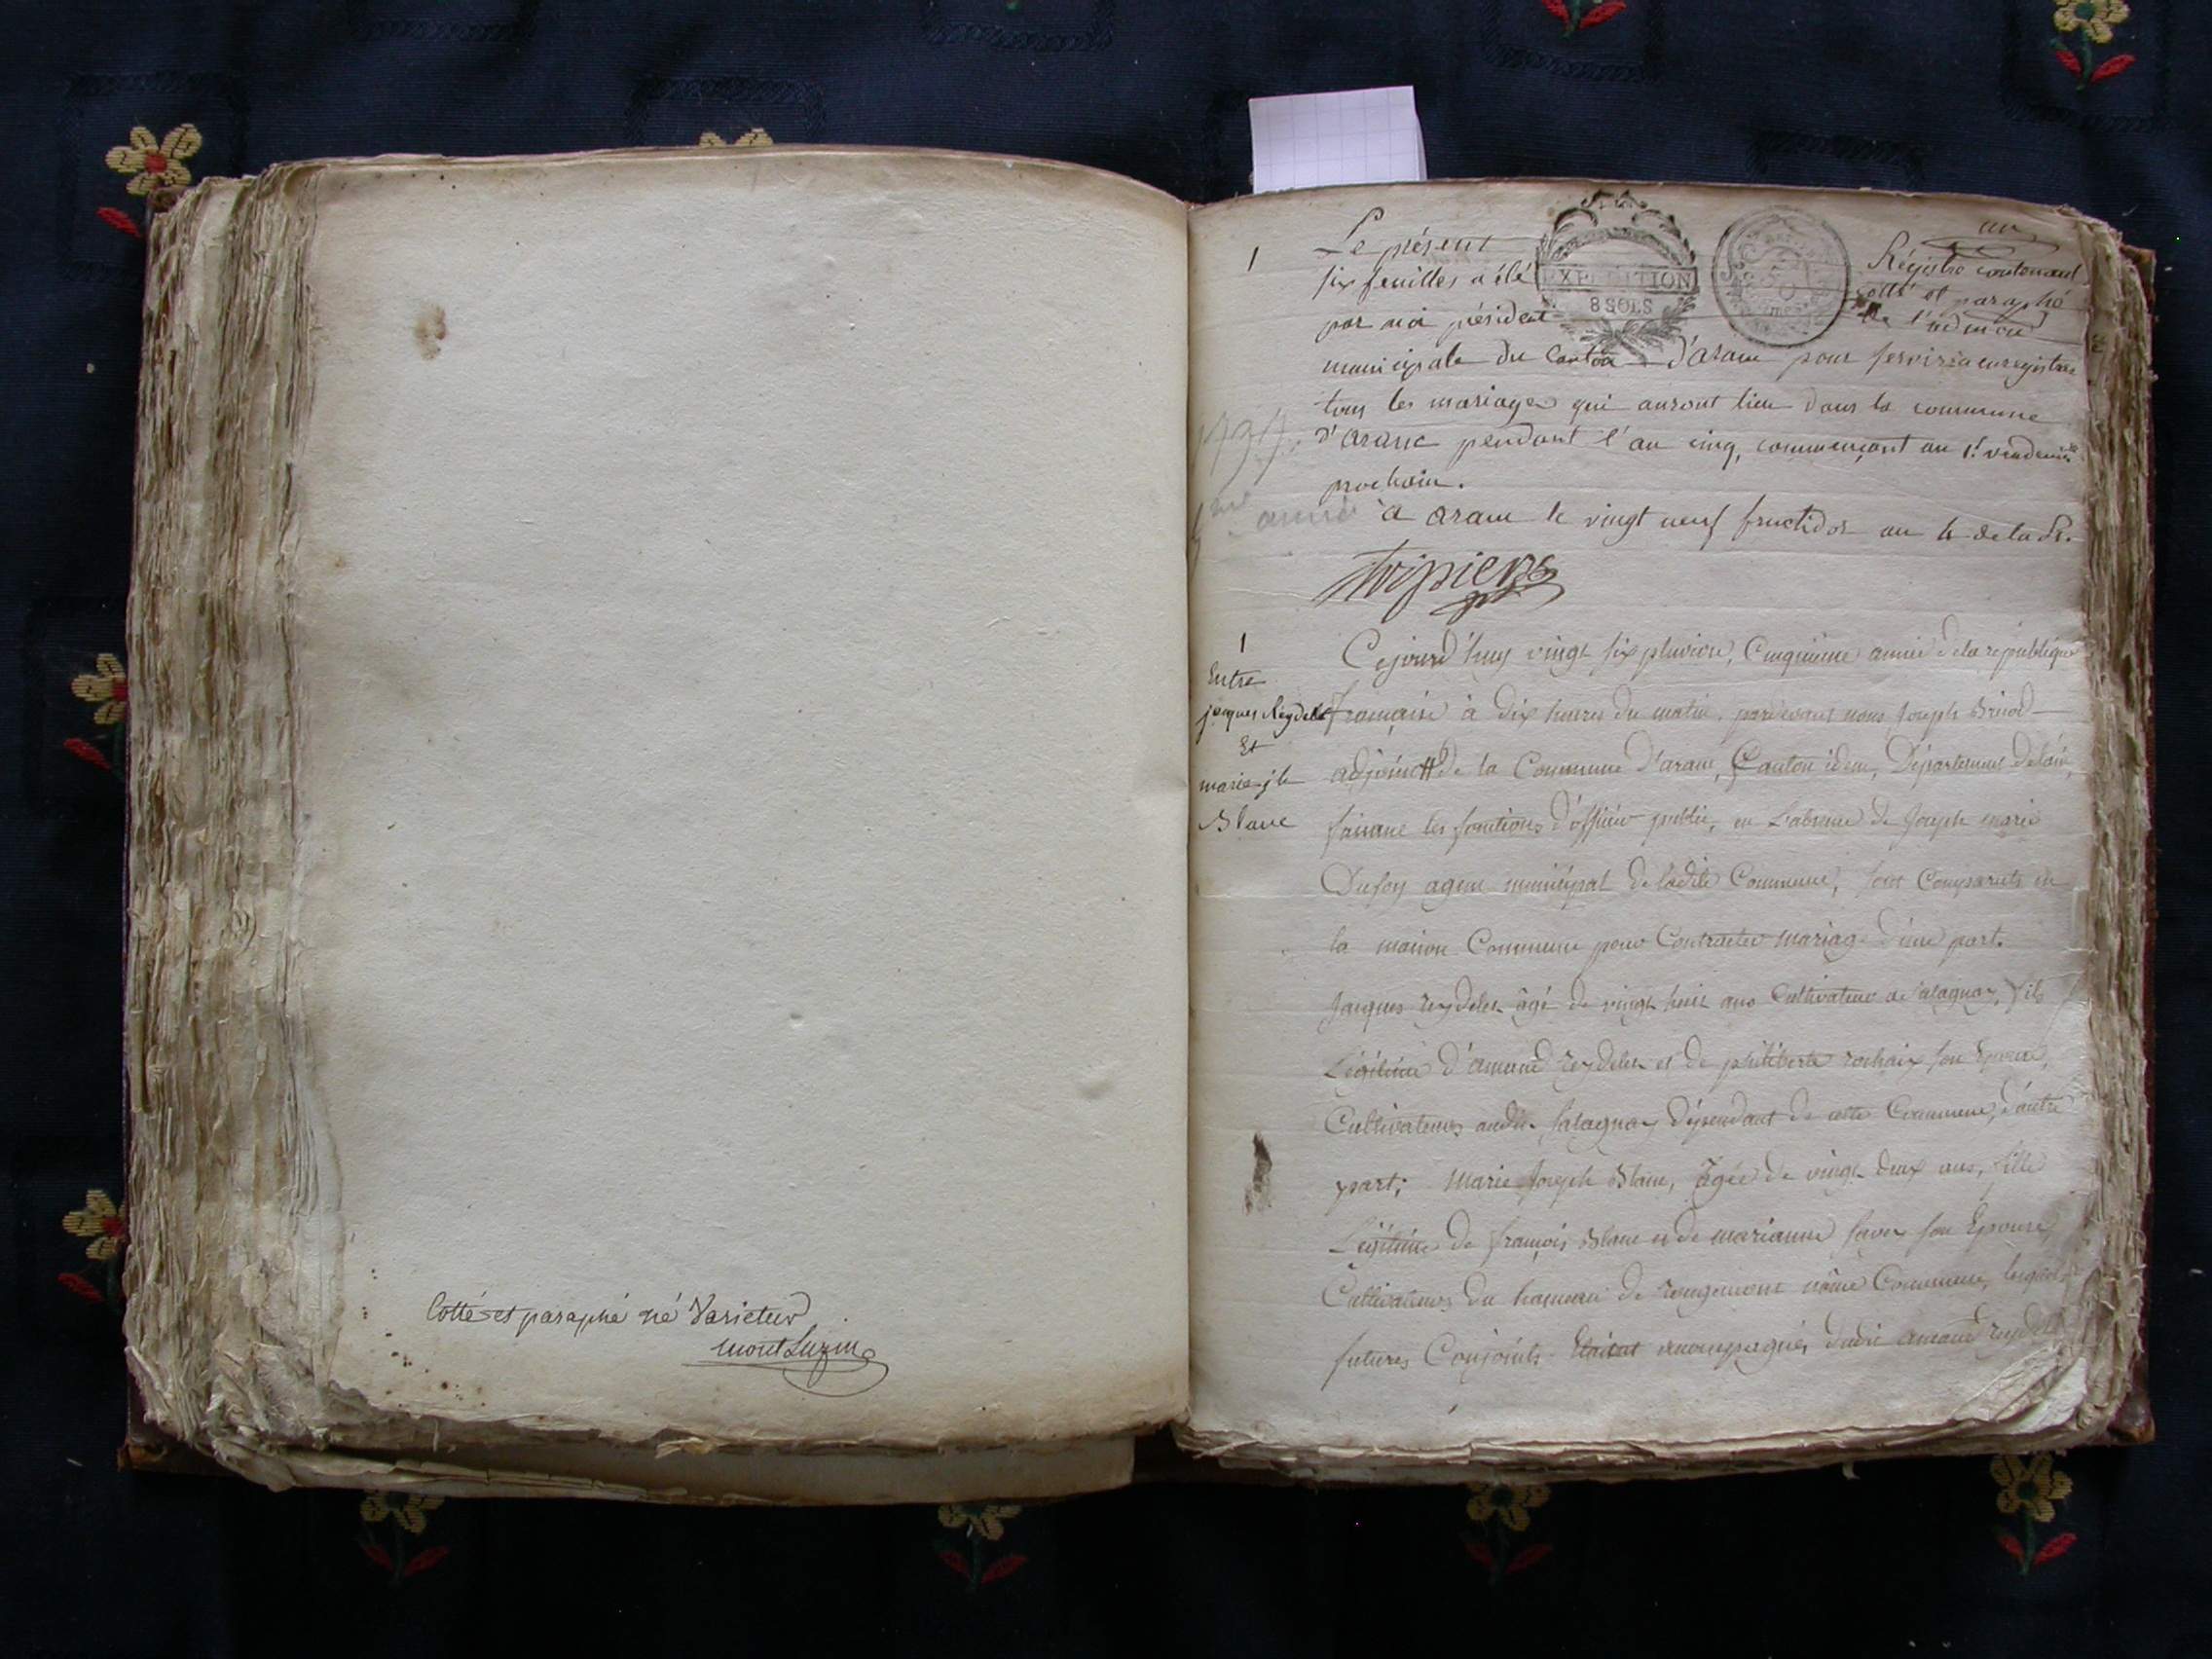 Cotté et paraphé né Varietur
montLuzin
1
un
Le présent Régistre contenant
six feuilles a été cotté et paraphé
par moi président de l'admon
EXPEDITION
8 SOLS
municipale du Canton d'aranc pour servir à enregistrer
tous les mariages qui auront lieu dans la commune
d'aranc pendant l'an cinq, commençant au 1er vendemre
prochain.
année
à aranc le vingt neuf fructidor an 4 de la R.
tripier
1
Entre
jacques Reydelet
Et
marie jh
Blanc
Cejourd'huy vingt six pluviose, Cinquieme année de la republique
francaise à dix heures du matin, pardevant nous Joseph Brunod
adjoint de la Commune d'aranc, Canton idem, Département de l'ain,
faisant les fonctions d'officier public, en l'absence de Joseph marie
agent municipal de ladite Commune, sont Comparuts en
la maison Commune pour Contracter mariage d'une part.
Jacques reydelet âgé de vingt huit ans Cultivateur a Salagnay, fils
Légitime d'amand reydelet et de philiberte rochaix son Epouse,
Cultivateurs audit Salagnay dépendant de cette Commune, d'autre
part; Marie Joseph Blanc, âgée de vingt deux ans, fille
Légitime de françois Blanc et de marianne savey son Epouse,
Cultivateurs du hameau de rougemont même Commune, lesquels
futures Conjoints Etaient accompagnés dudit amand reydelet